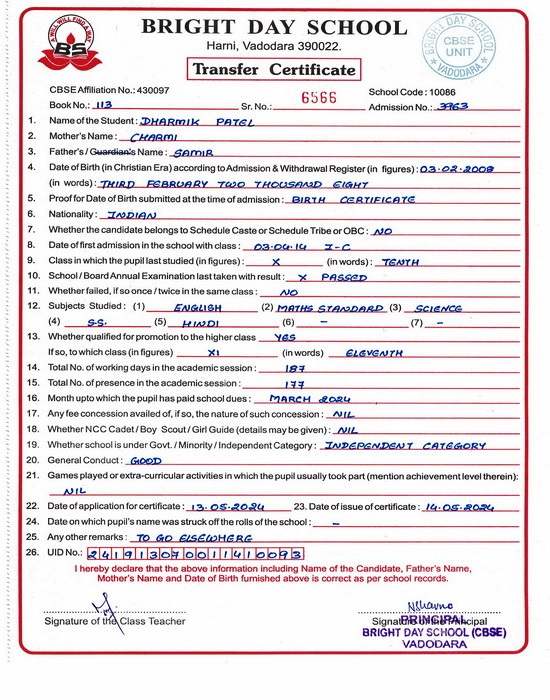 A WILL WILL FIND A WAY
BS
BRIGHT DAY SCHOOL
Harni, Vadodara 390022.
Transfer Certificate
BRIGHT DAY SCHOOL
CBSE
UNIT
VADODARA
CBSE Affiliation No.: 430097 School Code : 10086
Book No.: 113 Sr. No.: 6566 Admission No.: 3963
1. Name of the Student : DHARMIK PATEL
2. Mother's Name : CHARMI
3. Father's / Guardian's Name : SAMIR
4. Date of Birth (in Christian Era) according to Admission & Withdrawal Register (in figures) : 03.02.2008
(in words) : THIRD FEBRUARY TWO THOUSAND EIGHT
5. Proof for Date of Birth submitted at the time of admission : BIRTH CERTIFICATE
6. Nationality : INDIAN
7. Whether the candidate belongs to Schedule Caste or Schedule Tribe or OBC : NO
8. Date of first admission in the school with class : 03.04.14 I-C
9. Class in which the pupil last studied (in figures) : X (in words) : TENTH
10. School / Board Annual Examination last taken with result : X PASSED
11. Whether failed, if so once / twice in the same class : NO
12. Subjects Studied : (1) ENGLISH (2) MATHS STANDARD (3) SCIENCE
(4) S.S. (5) HINDI (6) – (7) –
13. Whether qualified for promotion to the higher class YES
If so, to which class (in figures) XI (in words) ELEVENTH
14. Total No. of working days in the academic session : 187
15. Total No. of presence in the academic session : 177
16. Month upto which the pupil has paid school dues : MARCH 2024
17. Any fee concession availed of, if so, the nature of such concession : NIL
18. Whether NCC Cadet / Boy Scout / Girl Guide (details may be given) : NIL
19. Whether school is under Govt. / Minority / Independent Category : INDEPENDENT CATEGORY
20. General Conduct : GOOD
21. Games played or extra-curricular activities in which the pupil usually took part (mention achievement level therein):
NIL
22. Date of application for certificate : 13.05.2024 23. Date of issue of certificate : 14.05.2024
24. Date on which pupil's name was struck off the rolls of the school : –
25. Any other remarks : TO GO ELSEWHERE
26. UID No.: 241913070011410093
I hereby declare that the above information including Name of the Candidate, Father's Name,
Mother's Name and Date of Birth furnished above is correct as per school records.
Signature of the Class Teacher Signature of the Principal
PRINCIPAL
BRIGHT DAY SCHOOL (CBSE)
VADODARA